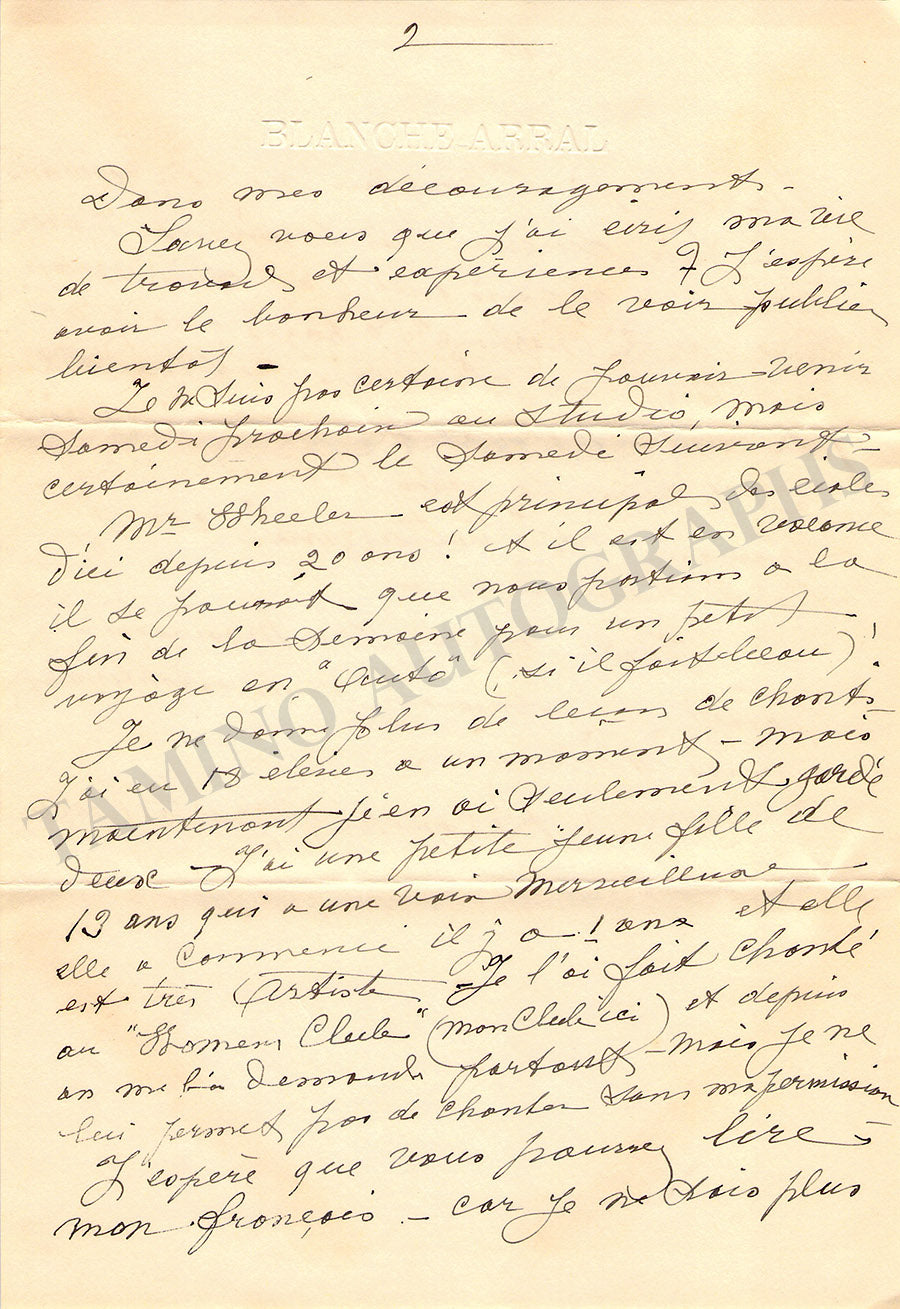 2
BLANCHE-ARRAL
Dans mes découragements -
Savez vous que j'ai écris ma vie
de travail et expériences ? J'espère
avoir le bonheur de le voir publier
bientôt -
Je ne suis pas certaine de pouvoir venir
Samedi prochain au studio, mais
certainement le Samedi suivant -
Mr Wheeler est principal des écoles
d'ici depuis 20 ans ! et il est en vacance
il se pourrait que nous partions a la
fin de la semaine pour un petit
voyage en "Auto" (si il fait beau)!
Je ne donne plus de leçons de chants -
J'ai eu 18 élèves a un moment - mais
maintenant j'en ai seulement gardé
deux - J'ai une petite jeune fille de
13 ans qui a une voix merveilleuse -
elle a commencé il y a 1 ans et elle
est très Artiste - Je l'ai fait chanté
au "Womens Club" (mon Club ici) et depuis
on me l'a demandé partout - mais je ne
lui permet pas de chanter sans ma permission
J'espère que vous pourrez lire -
mon français - car je ne sais plus
TAMINO AUTOGRAPHS